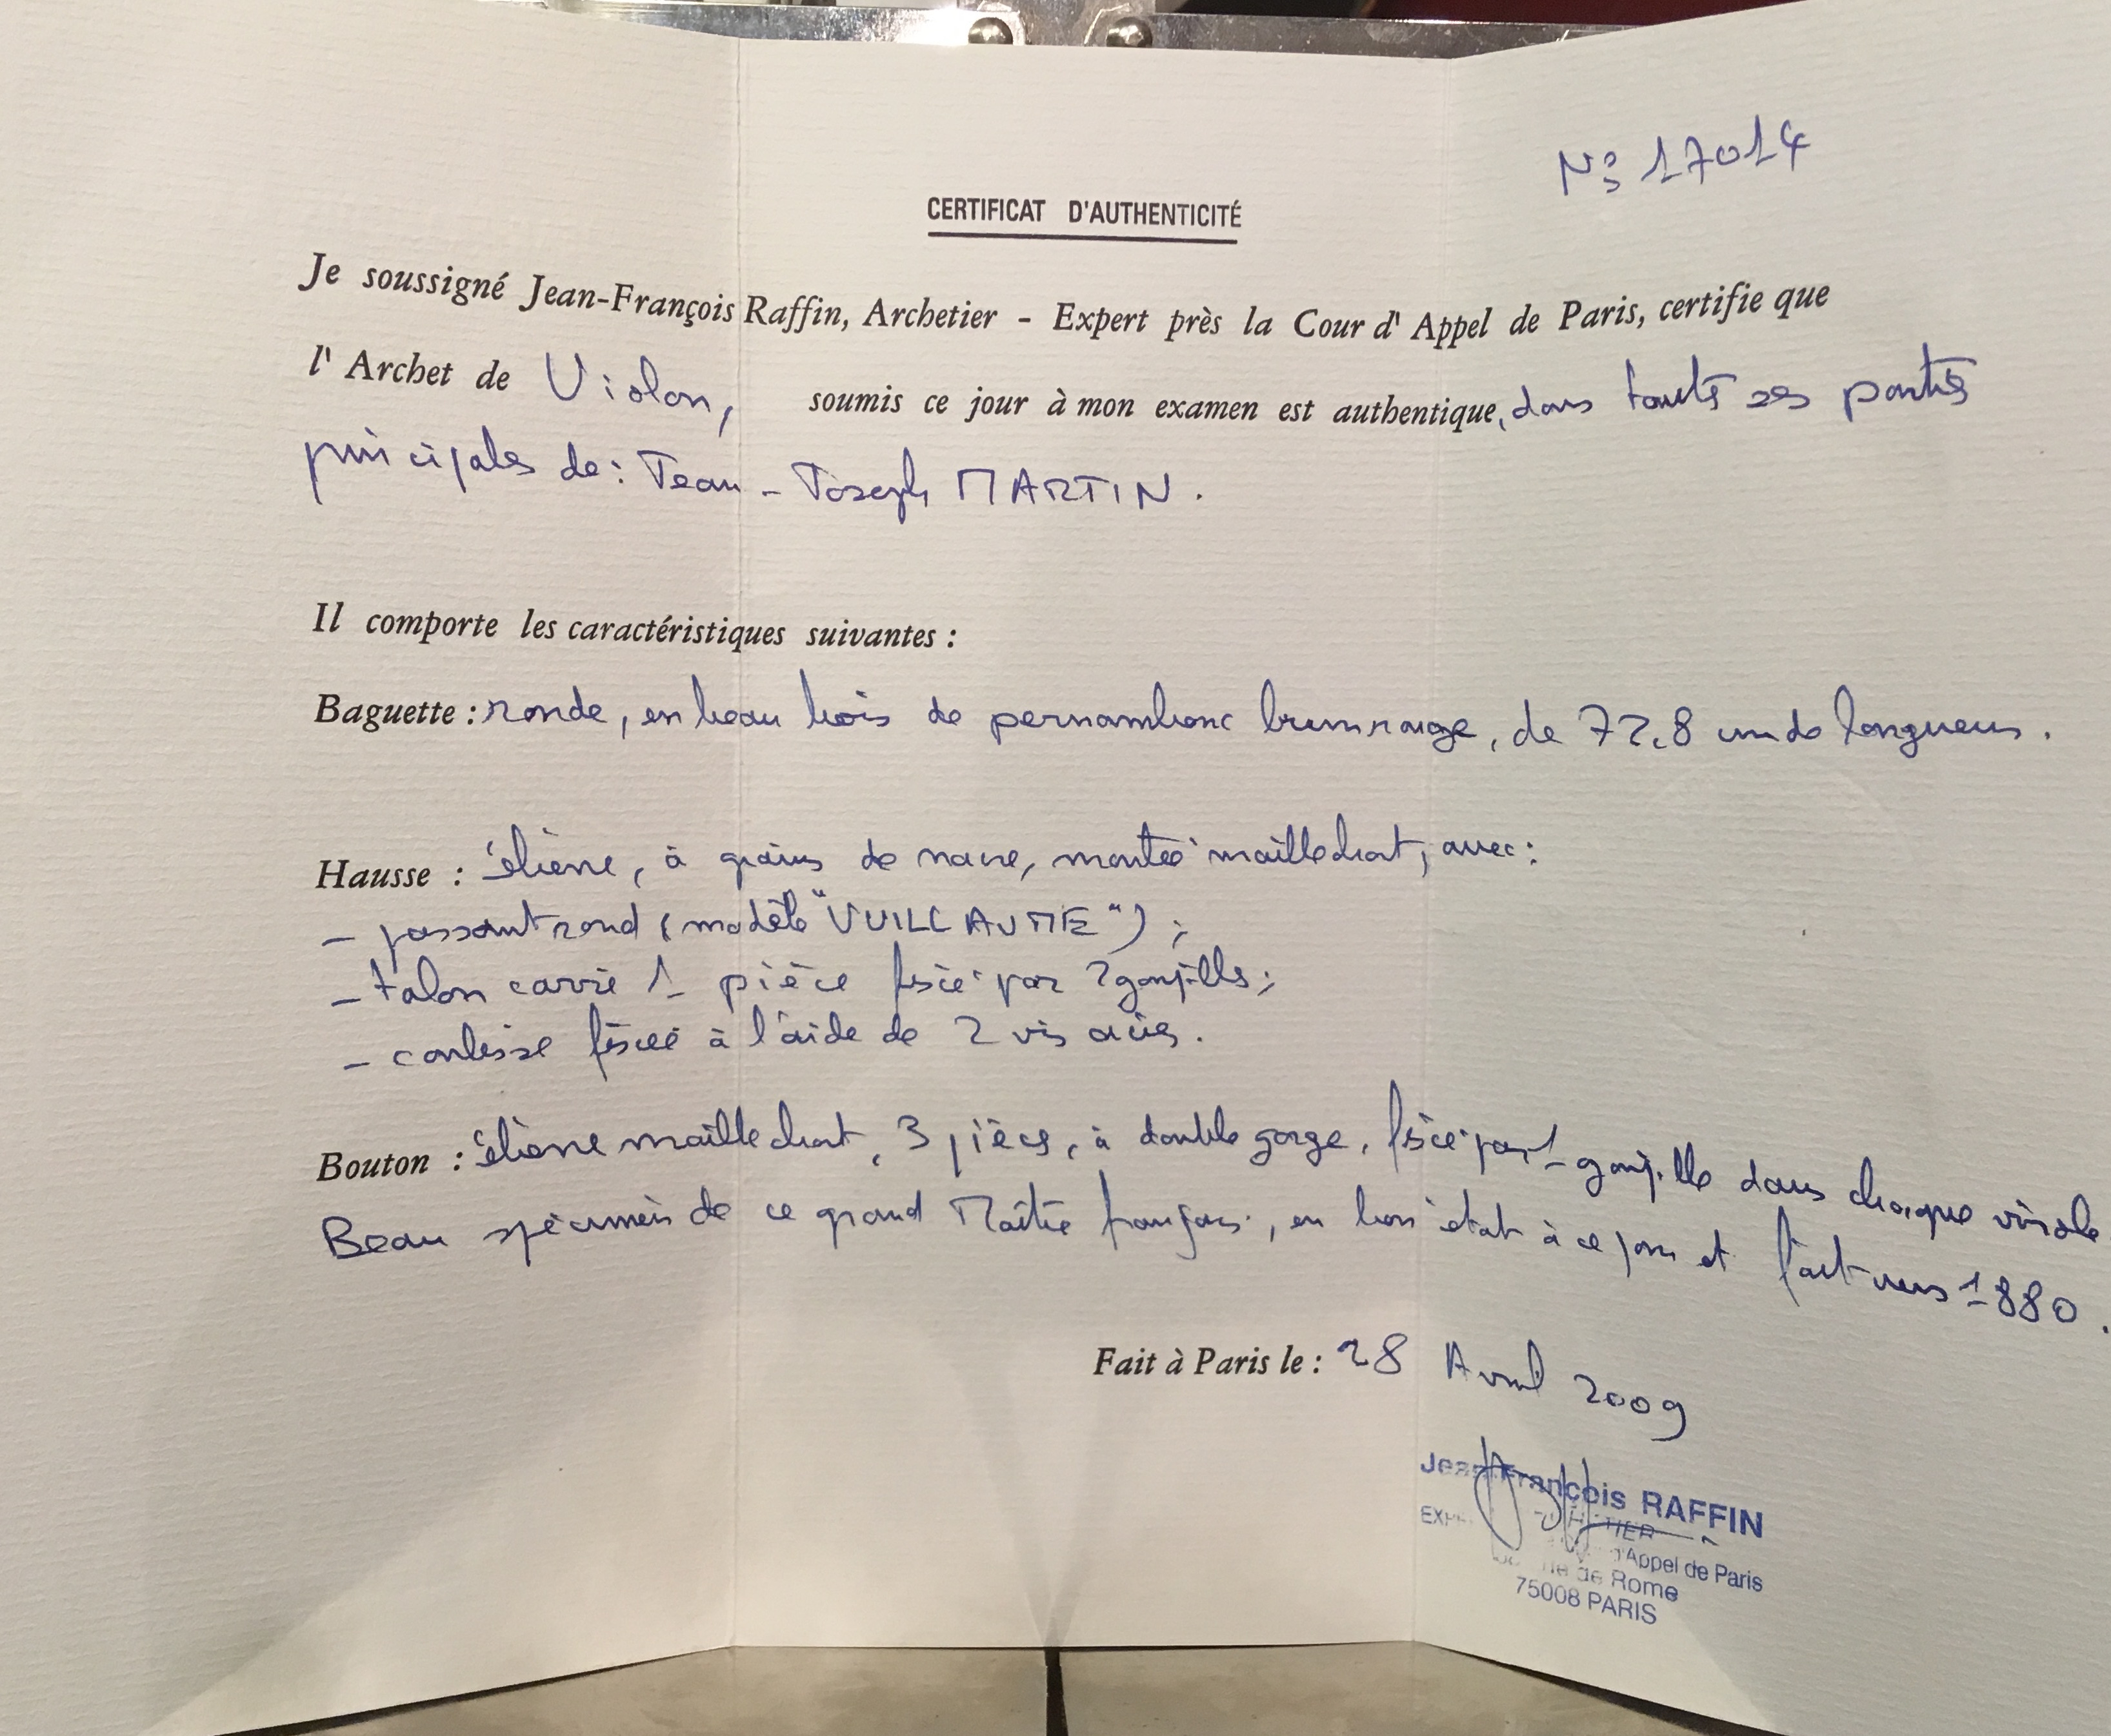 N° 17014
CERTIFICAT D'AUTHENTICITÉ
Je soussigné Jean-François Raffin, Archetier - Expert près la Cour d'Appel de Paris, certifie que
l'Archet de Violon, soumis ce jour à mon examen est authentique, dans toutes ses parties
principales de : Jean-Joseph MARTIN.
Il comporte les caractéristiques suivantes :
Baguette : ronde, en beau bois de pernambouc brun rouge, de 72,8 cm de longueur.
Hausse : ébène, à grains de nacre, montée maillechort, avec :
- passant rond (modèle "VUILLAUME") ;
- talon carré 1 pièce fixé par 2 goupilles ;
- coulisse fixée à l'aide de 2 vis acier.
Bouton : ébène maillechort, 3 pièces, à double gorge, fixée par 1 goupille dans chaque virole
Beau spécimen de ce grand Maître français, en bon état à ce jour et fait vers 1880.
Fait à Paris le : 28 Avril 2009
Jean-François RAFFIN
d'Appel de Paris
de Rome
75008 PARIS